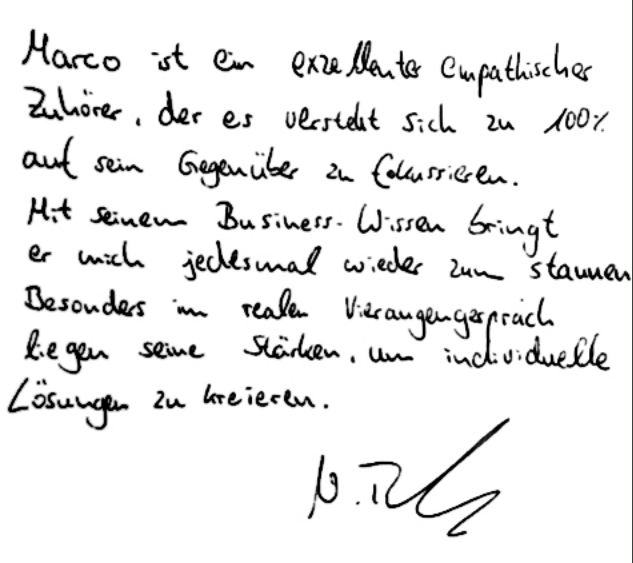 Marco ist ein exzellenter empathischer
Zuhörer, der es versteht sich zu 100%
auf sein Gegenüber zu fokussieren.
Mit seinem Business-Wissen bringt
er mich jedesmal wieder zum staunen
Besonders im realen Vieraugengespräch
liegen seine Stärken, um individuelle
Lösungen zu kreieren.